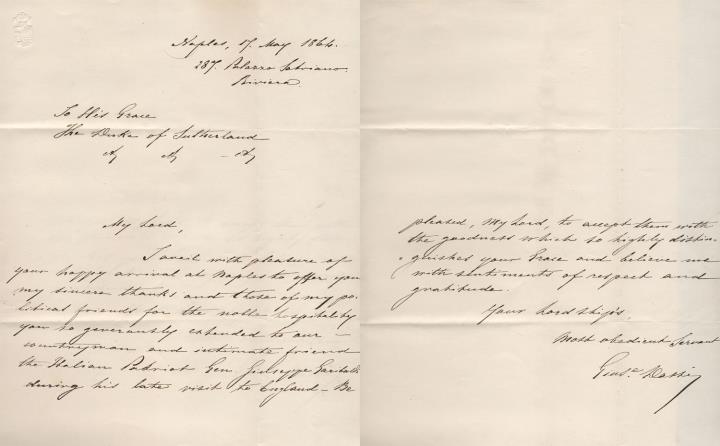 Naples, 17. May 1864.
287. Palazzo Satriano
Riviera
To His Grace
The Duke of Sutherland
My Lord,
I avail with pleasure of
your happy arrival at Naples to offer you
my sincere thanks and those of my po-
litical friends for the noble hospitality
you so generously extended to our -
countryman and intimate friend
the Italian Patriot Gen. Giuseppe Garibaldi
during his late visit to England - Be
pleased, My Lord, to accept them with
the goodness which so highly distin-
guishes your Grace and believe me
with sentiments of respect and
gratitude.
Your Lordship's,
Most obedient Servant